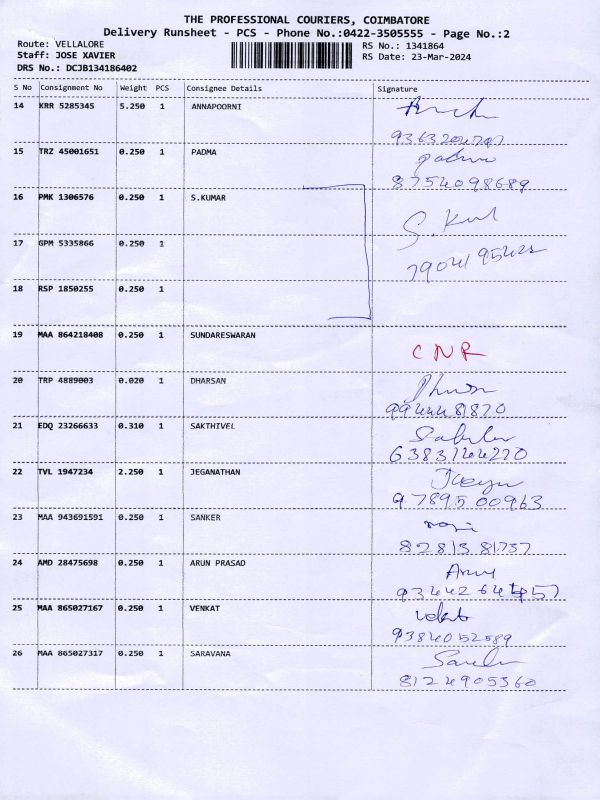 THE PROFESSIONAL COURIERS, COIMBATORE
Delivery Runsheet - PCS - Phone No.:0422-3505555 - Page No.:2
Route: VELLALORE RS No.: 1341864
Staff: JOSE XAVIER RS Date: 23-Mar-2024
DRS No.: DCJB134186402
S No Consignment No Weight PCS Consignee Details Signature
14 KRR 5285345 5.250 1 ANNAPOORNI
15 TRZ 45001651 0.250 1 PADMA padma
8754098689
16 PMK 1306576 0.250 1 S.KUMAR
S. Kul
17 GPM 5335866 0.250 1
18 RSP 1850255 0.250 1
19 MAA 864218408 0.250 1 SUNDARESWARAN
CNR
20 TRP 4889003 0.020 1 DHARSAN
21 EDQ 23266633 0.310 1 SAKTHIVEL
22 TVL 1947234 2.250 1 JEGANATHAN
9789500963
23 MAA 943691591 0.250 1 SANKER
8281381737
24 AMD 28475698 0.250 1 ARUN PRASAD
25 MAA 865027167 0.250 1 VENKAT
9384052589
26 MAA 865027317 0.250 1 SARAVANA
8124905360